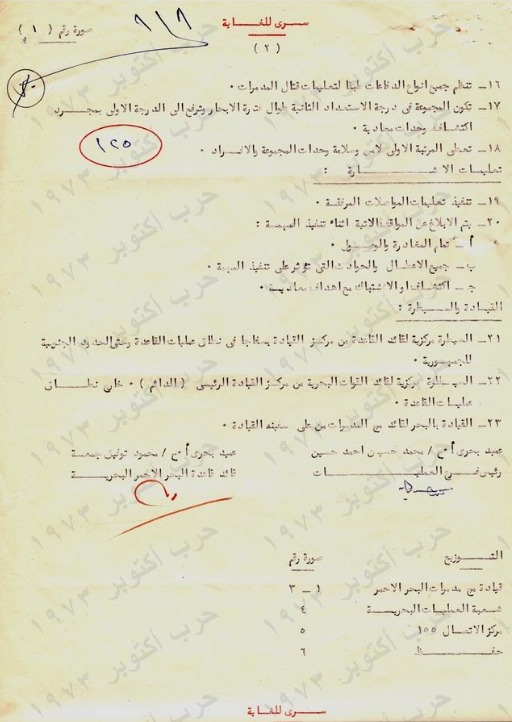 سرى للغاية
( ٢ )
صورة رقم ( ١ )
١٦ــ تنظم جميع انواع الدفاعات طبقا لتعليمات قتال المدمرات ٠
١٧ــ تكون المجموعة فى درجة الاستعداد الثانية طوال فترة الابحار وترفع الى الدرجة الاولى بمجرد
اكتشاف وحدات معادية ٠
١٨ــ تعطى المرتبة الاولى لامن وسلامة وحدات المجموعة والافراد ٠
١٢٥
تعليمات الاشارة :
١٩ــ تنفيذ تعليمات المواصلات المرفقة ٠
٢٠ــ يتم الابلاغ عن المواقف الاتية اثناء تنفيذ المهمة :
أ ــ تمام المغادرة والوصول ٠
ب ــ جميع الاعطال والحوادث التى تؤثر على تنفيذ المهمة ٠
جـ ــ اكتشاف او الاشتباك مع اهداف معادية ٠
القيادة والسيطرة :
٢١ــ السيطرة مركزية لقائد القاعدة من مركز القيادة بسفاجا فى نطاق عمليات القاعدة وحتى الحدود الجنوبية
للجمهورية ٠
٢٢ــ السيطرة مركزية لقائد القوات البحرية من مركز القيادة الرئيسى ( الدائم ) ٠ خارج نطاق
عمليات القاعدة ٠
٢٣ــ القيادة بالبحر لقائد مج المدمرات من على سفينه القيادة ٠
عميد بحرى أ٠ح / محمد حسين احمد حسين
عميد بحرى أ٠ح / محمود توفيق جمعة
رئيس العمليات
قائد قاعدة البحر الاحمر البحرية
التوزيع
صورة رقم
قيادة مج مدمرات البحر الاحمر
١ ــ ٣
شعبة العمليات البحرية
٤
مركز الاتصال ١٥٥
٥
حفظ
٦
سرى للغاية
حرب أكتوبر ١٩٧٣